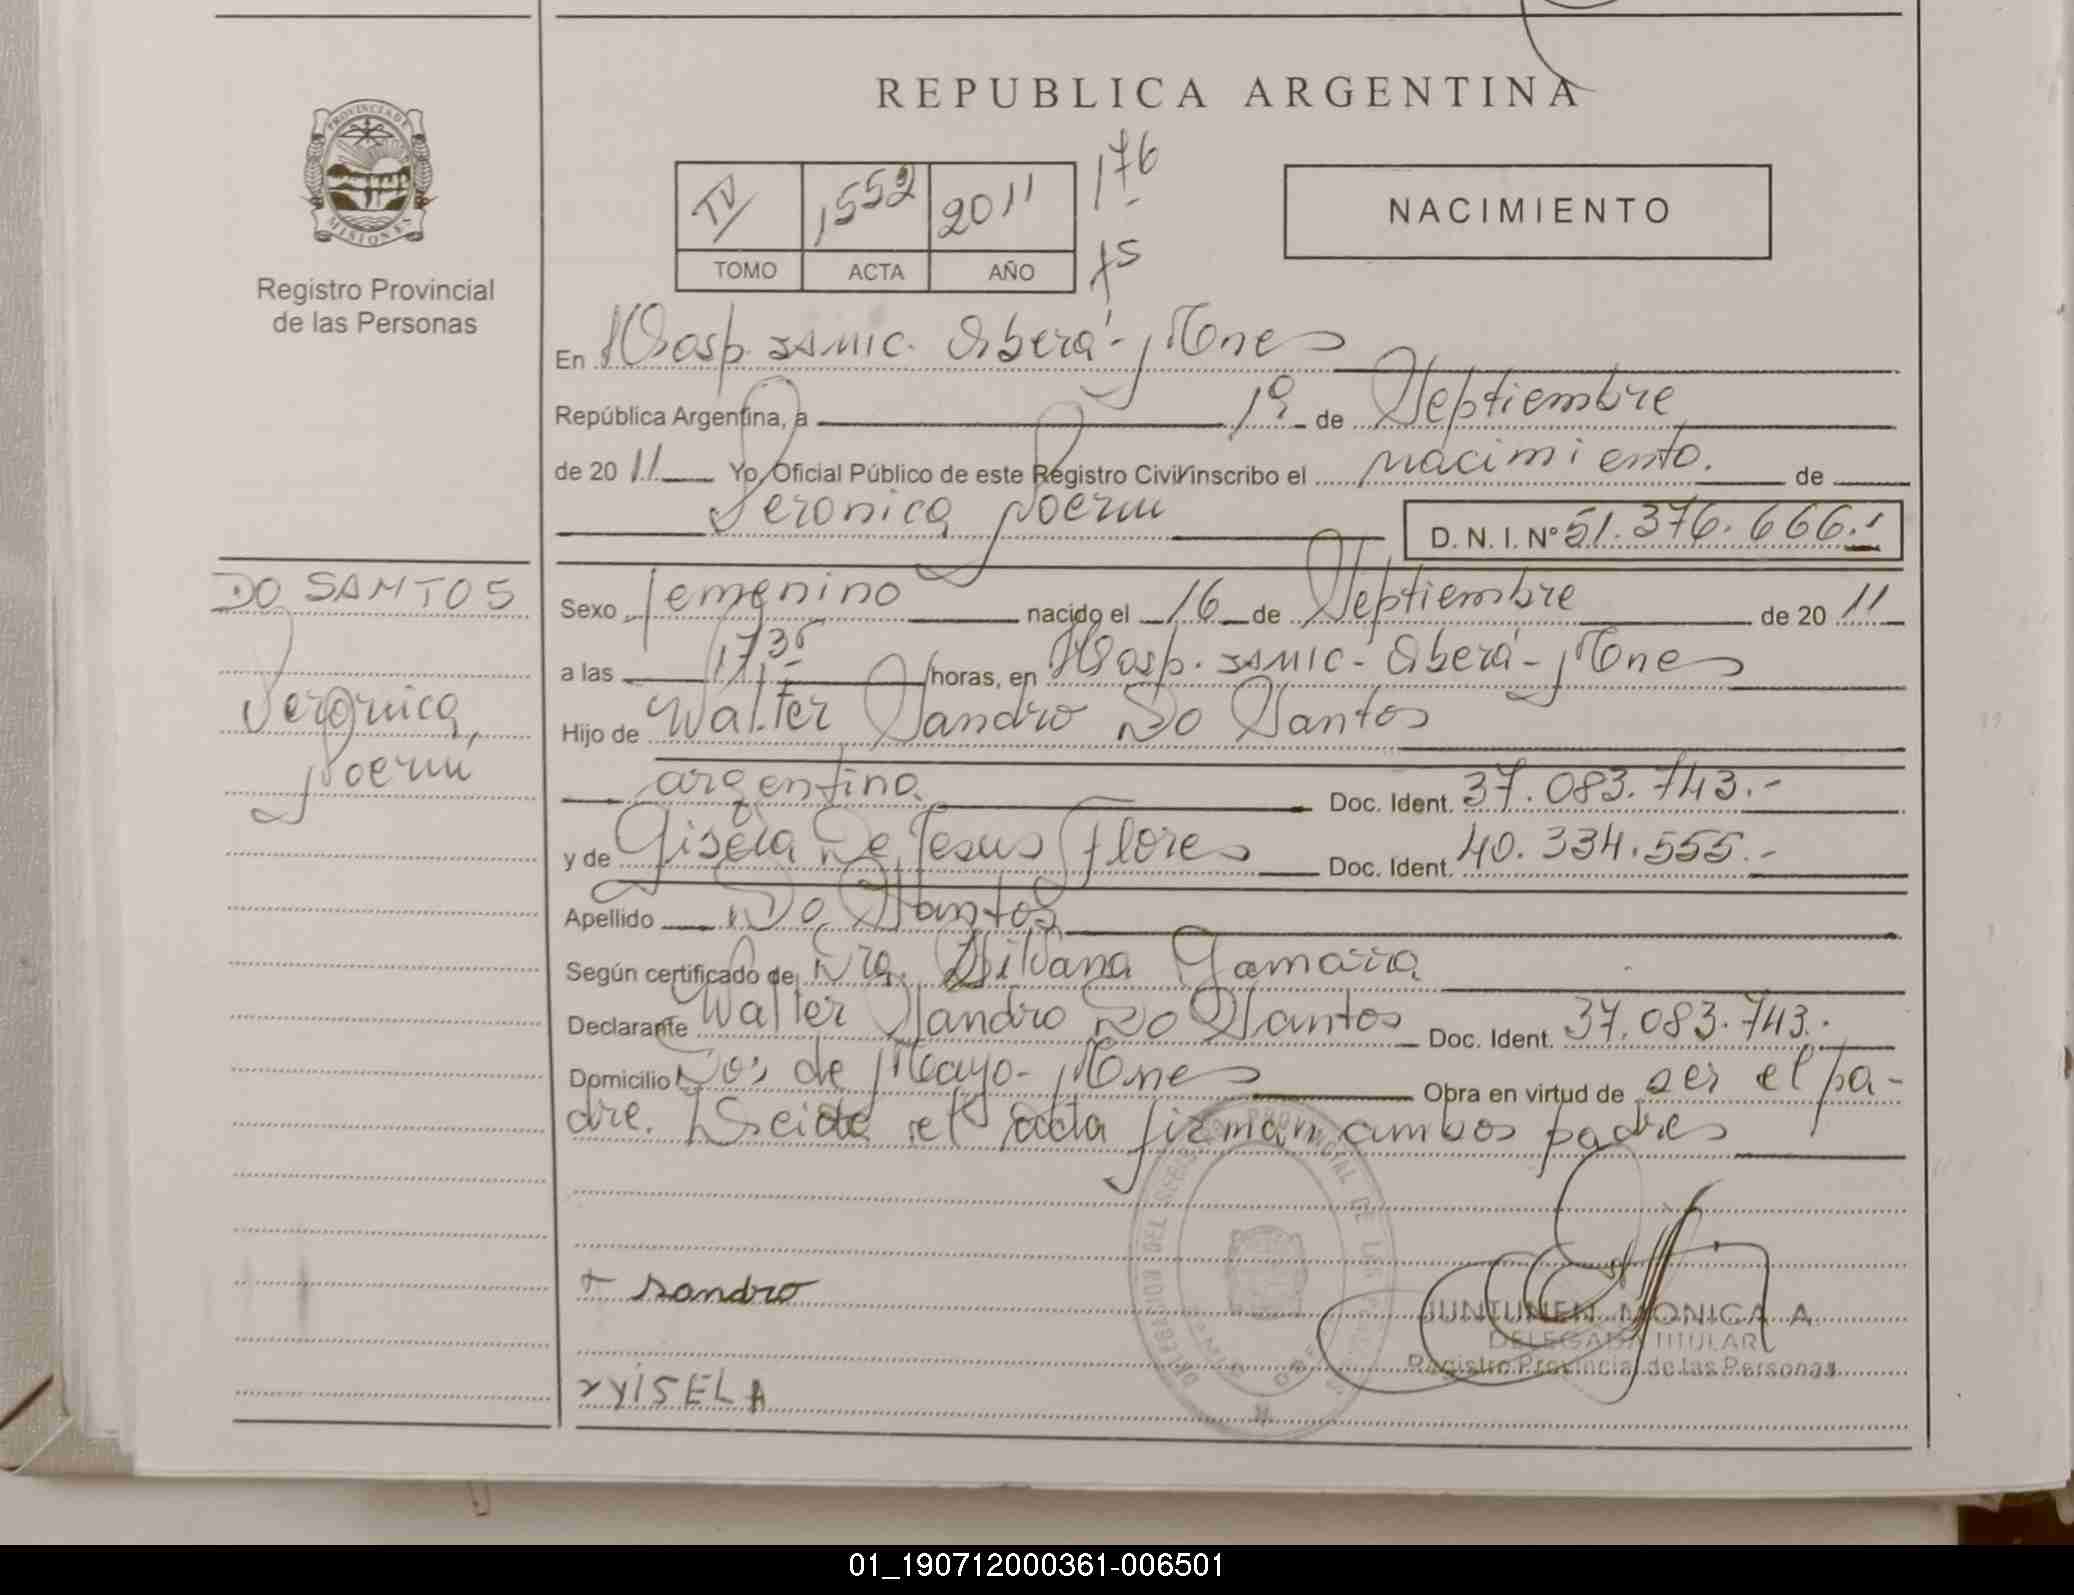 REPUBLICA ARGENTINA
PROVINCIA DE MISIONES
Registro Provincial
de las Personas
IV 1552 2011 176
TOMO ACTA AÑO 75
NACIMIENTO
En Hosp. SAMIC. Oberá - Mnes
República Argentina, a 19 de Septiembre
de 2011 Yo, Oficial Público de este Registro Civil inscribo el nacimiento. de
Veronica Noemi D. N. I. Nº 51.376.666.-
DO SANTOS
Veronica
Noemi
Sexo femenino nacido el 16 de Septiembre de 2011
a las 1735 horas, en Hosp. SAMIC - Oberá - Mnes
Hijo de Walter Sandro Do Santos
argentino Doc. Ident. 37.083.743.-
y de Gisela De Jesus Flores Doc. Ident. 40.334.555.-
Apellido Do Santos
Según certificado de Dra. Silvana Gamarra
Declarante Walter Sandro Do Santos Doc. Ident. 37.083.743.-
Domicilio Dos de Mayo - Mnes Obra en virtud de ser el pa-
dre. Leida el acta firman ambos padres
+ sandro
yiSELA
JUNTUNEN MONICA A
DELEGADA TITULAR
Registro Provincial de las Personas
01_190712000361-006501